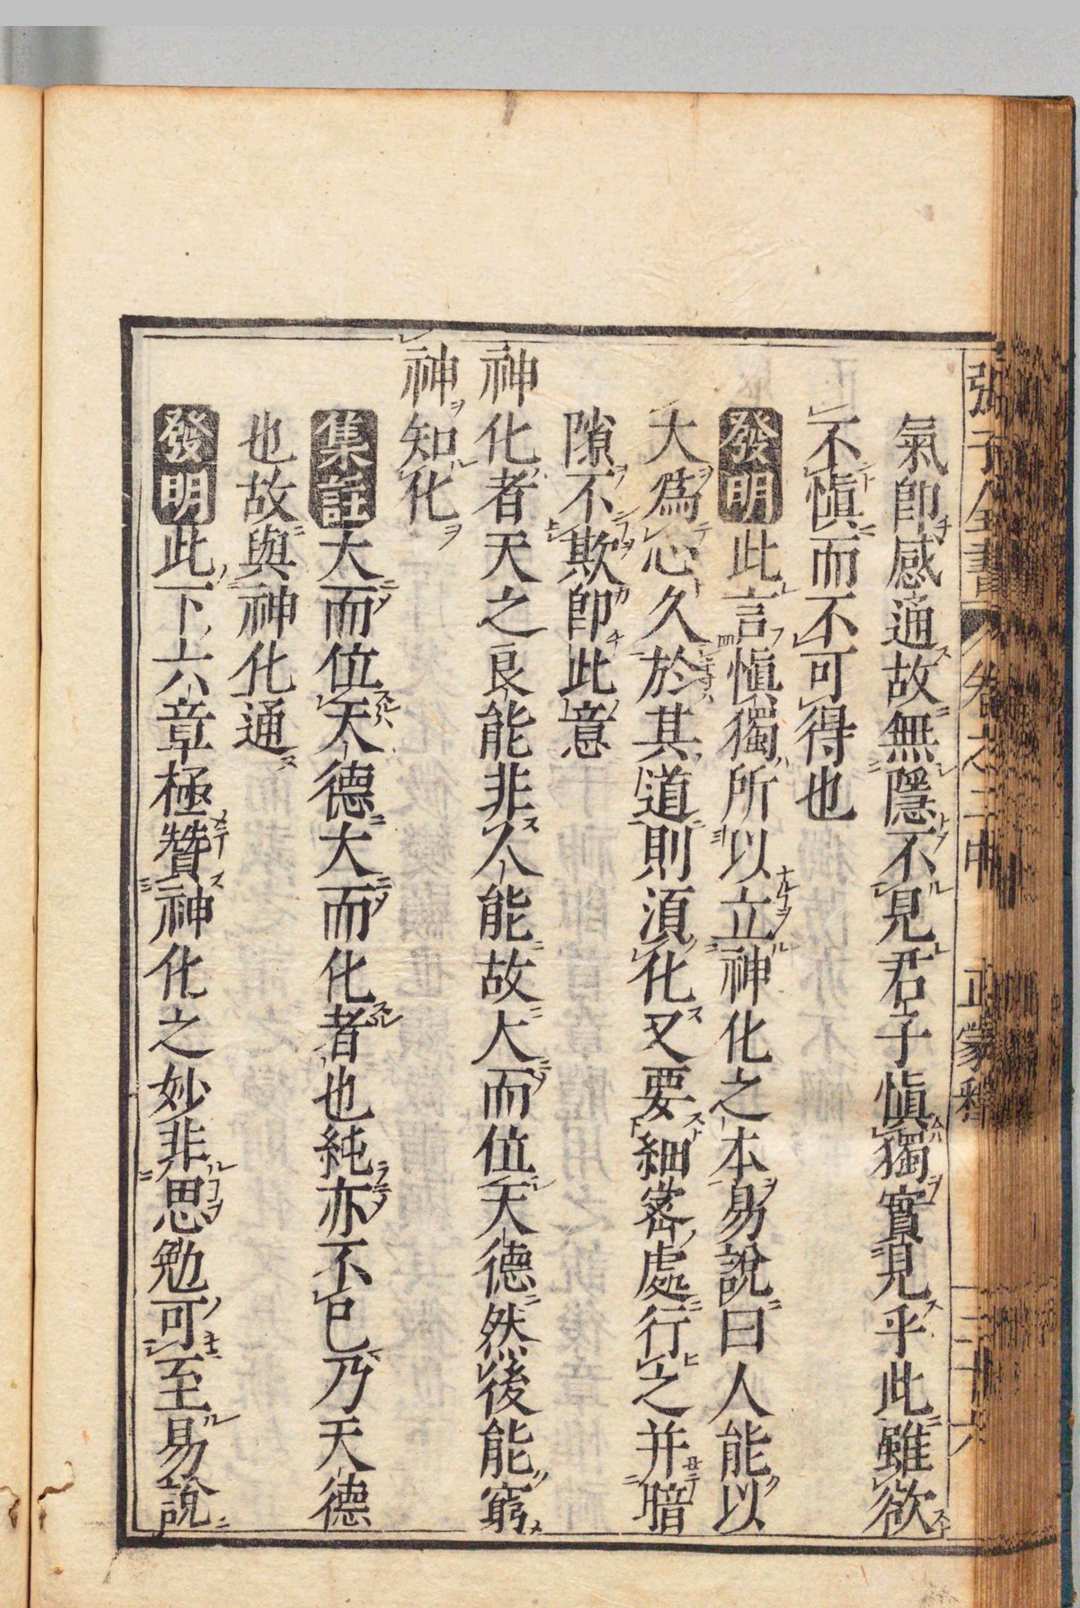 氣即感通故無隱不見君子愼獨實見乎此雖欲
不愼而不可得也
發明此言愼獨所以立神化之本易說曰人能以
大爲心久於其道則須化又要細密處行之并暗
隙不欺即此意
神化者天之良能非人能故大而位天德然後能窮
神知化
集註大而位天德大而化者也純亦不已乃天德
也故與神化通
發明此下六章極贊神化之妙非思勉可至易說
張子全書 卷之二中 正蒙釋 二十六